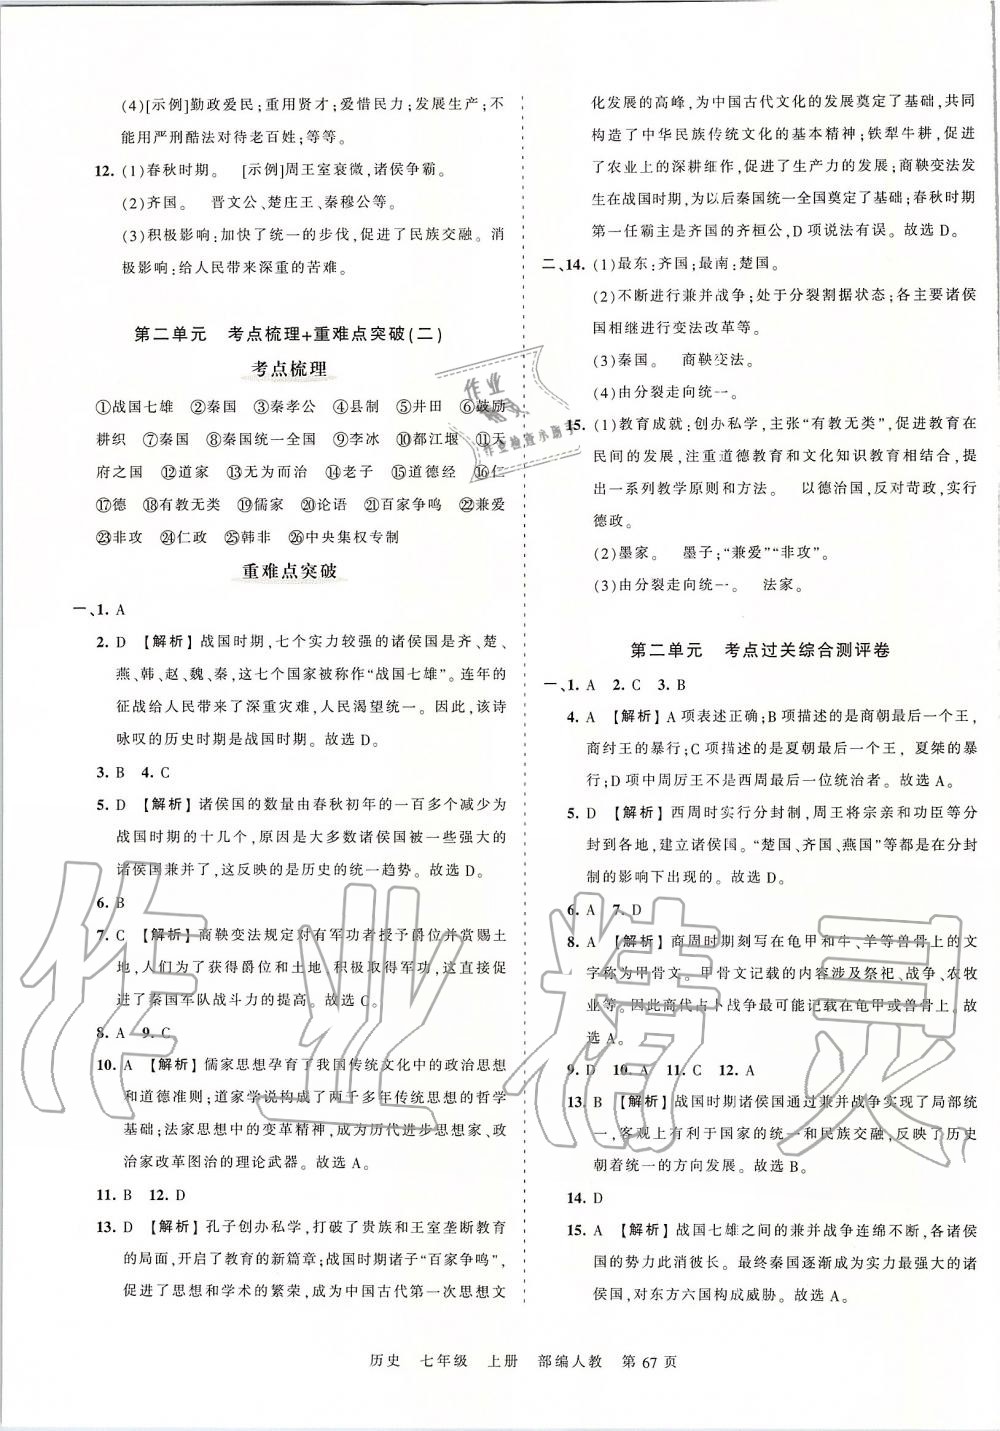 (4)[示例]勤政爱民;重用贤才;爱惜民力;发展生产;不
能用严刑酷法对待老百姓;等等。
12. (1)春秋时期。 [示例]周王室衰微,诸侯争霸。
(2)齐国。 晋文公、楚庄王、秦穆公等。
(3)积极影响:加快了统一的步伐,促进了民族交融。消
极影响:给人民带来深重的苦难。
第二单元 考点梳理+重难点突破(二)
考点梳理
①战国七雄 ②秦国 ③秦孝公 ④县制 ⑤井田 ⑥鼓励
耕织 ⑦秦国 ⑧秦国统一全国 ⑨李冰 ⑩都江堰 ⑪天
府之国 ⑫道家 ⑬无为而治 ⑭老子 ⑮道德经 ⑯仁
⑰德 ⑱有教无类 ⑲儒家 ⑳论语 ㉑百家争鸣 ㉒兼爱
㉓非攻 ㉔仁政 ㉕韩非 ㉖中央集权专制
重难点突破
一、1. A
2. D 【解析】战国时期,七个实力较强的诸侯国是齐、楚、
燕、韩、赵、魏、秦,这七个国家被称作“战国七雄”。连年的
征战给人民带来了深重灾难,人民渴望统一。因此,该诗
咏叹的历史时期是战国时期。故选 D。
3. B 4. C
5. D 【解析】诸侯国的数量由春秋初年的一百多个减少为
战国时期的十几个,原因是大多数诸侯国被一些强大的
诸侯国兼并了,这反映的是历史的统一趋势。故选 D。
6. B
7. C 【解析】商鞅变法规定对有军功者授予爵位并赏赐土
地,人们为了获得爵位和土地,积极取得军功,因此促
进了秦国军队战斗力的提高。故选 C。
8. A 9. C
10. A 【解析】儒家思想孕育了我国传统文化中的政治思想
和道德准则;道家学说构成了两千多年传统思想的哲学
基础;法家思想中的变革精神,成为历代进步思想家、政
治家改革图治的理论武器。故选 A。
11. B 12. D
13. D 【解析】孔子创办私学,打破了贵族和王室垄断教育
的局面,开启了教育的新篇章;战国时期诸子“百家争鸣”,
促进了思想和学术的繁荣,成为中国古代第一次思想文
化发展的高峰,为中国古代文化的发展奠定了基础,共同
构造了中华民族传统文化的基本精神;铁犁牛耕,促进
了农业上的深耕细作,促进了生产力的发展;商鞅变法发
生在战国时期,为以后秦国统一全国奠定了基础;春秋时期
第一任霸主是齐国的齐桓公,D 项说法有误。故选 D。
二、14. (1)最东:齐国;最南:楚国。
(2)不断进行兼并战争;处于分裂割据状态;各主要诸侯
国相继进行变法改革等。
(3)秦国。 商鞅变法。
(4)由分裂走向统一。
15. (1)教育成就:创办私学,主张“有教无类”,促进教育在
民间的发展,注重道德教育和文化知识教育相结合,提
出一系列教学原则和方法。 以德治国,反对苛政,实行
德政。
(2)墨家。 墨子;“兼爱”“非攻”。
(3)由分裂走向统一。 法家。
第二单元 考点过关综合测评卷
一、1. A 2. C 3. B
4. A 【解析】A 项表述正确;B 项描述的是商朝最后一个王,
商纣王的暴行;C 项描述的是夏朝最后一个王,夏桀的暴
行;D 项中周厉王不是西周最后一位统治者。故选 A。
5. D 【解析】西周时实行分封制,周王将宗亲和功臣等分
封到各地,建立诸侯国。“楚国、齐国、燕国”等都是在分封
制的影响下出现的。故选 D。
6. A 7. D
8. A 【解析】商周时期刻写在龟甲和牛、羊等兽骨上的文
字称为甲骨文。甲骨文记载的内容涉及祭祀、战争、农牧
业等。因此商代占卜战争最可能记载在龟甲或兽骨上。故
选 A。
9. D 10. A 11. C 12. A
13. B 【解析】战国时期诸侯国通过兼并战争实现了局部统
一,客观上有利于国家的统一和民族交融,反映了历史
朝着统一的方向发展。故选 B。
14. D
15. A 【解析】战国七雄之间的兼并战争连绵不断,各诸侯
国的势力此消彼长。最终秦国逐渐成为实力最强大的诸
侯国,对东方六国构成威胁。故选 A。
历史 七年级 上册 部编人教 第 67 页
作业精灵